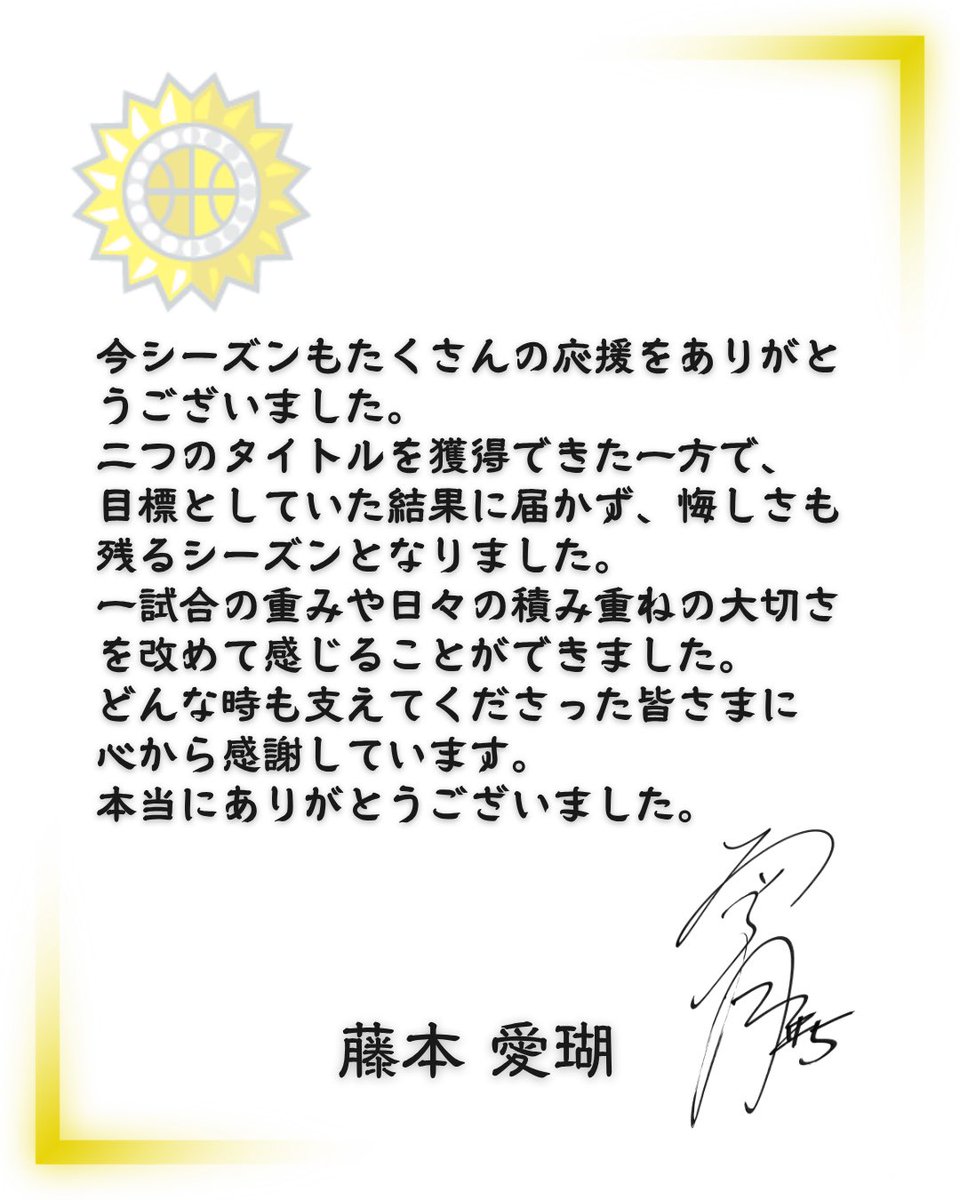 今シーズンもたくさんの応援をありがと
うございました。
二つのタイトルを獲得できた一方で、
目標としていた結果に届かず、悔しさも
残るシーズンとなりました。
一試合の重みや日々の積み重ねの大切さ
を改めて感じることができました。
どんな時も支えてくださった皆さまに
心から感謝しています。
本当にありがとうございました。
藤本 愛瑚